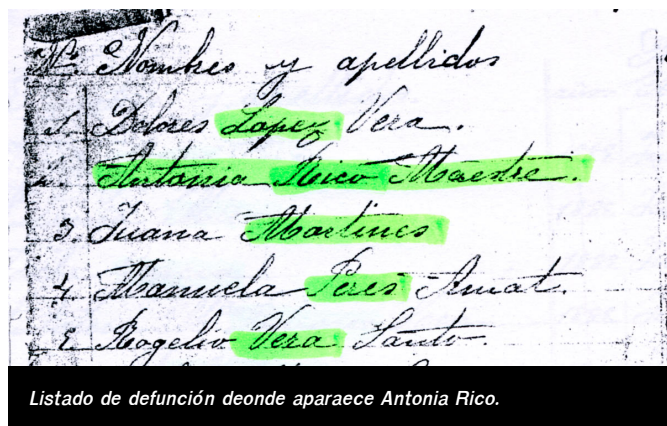 Nº Nombres y apellidos
1. Dolores Lopez Vera.
2. Antonia Rico Maestre.
3. Juana Martines
4 Manuela Peres Amat.
5 Rogelio Vera Santo.
Listado de defunción deonde aparaece Antonia Rico.